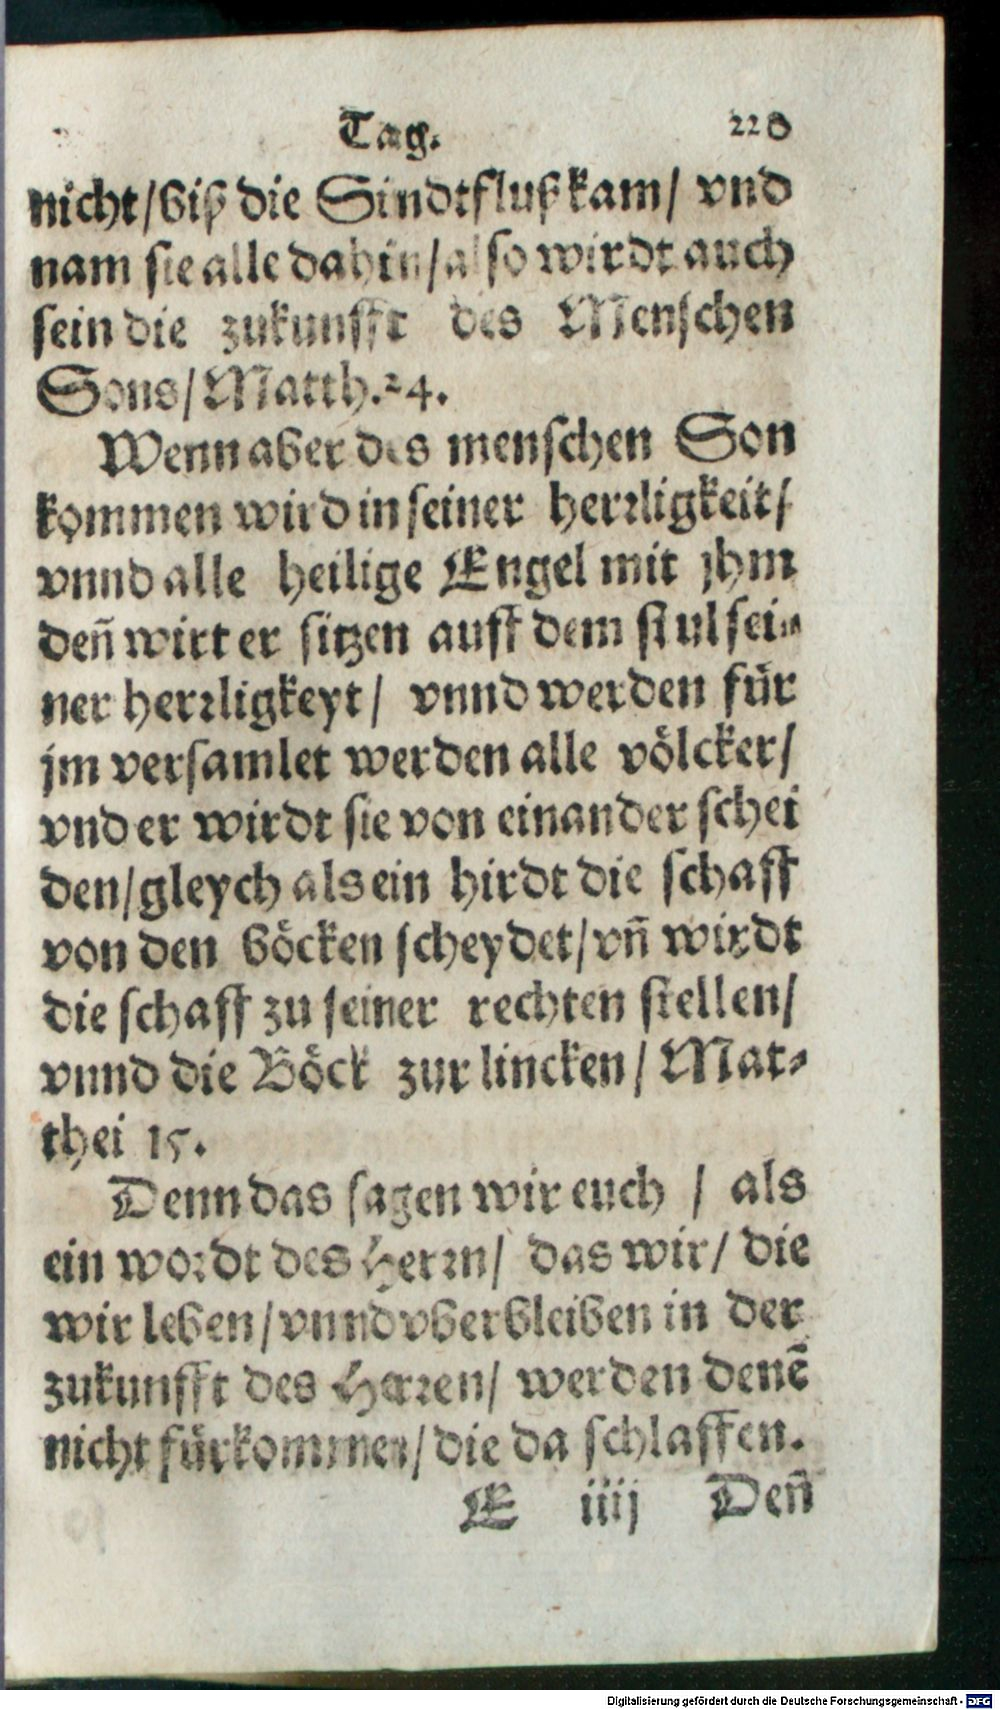 Tag. 228
nicht/biß die Sindtfluß kam/ vnd
nam sie alle dahin/also wirdt auch
sein die zukunfft des Menschen
Sons/Matth.24.
Wenn aber des menschen Son
kommen wird in seiner herrligkeit/
vnnd alle heilige Engel mit jhm
deñ wirt er sitzen auff dem stul sei-
ner herrligkeyt/ vnnd werden für
jm versamlet werden alle völcker/
vnd er wirdt sie von einander schei
den/gleych als ein hirdt die schaff
von den böcken scheydet/vñ wirdt
die schaff zu seiner rechten stellen/
vnnd die Böck zur lincken/Mat-
thei 15.
Denn das sagen wir euch / als
ein wordt des Herrn/ das wir/ die
wir leben/vnnd vberbleiben in der
zukunfft des Herren/ werden denē
nicht fürkommen/die da schlaffen.
E iiij Deñ
Digitalisierung gefördert durch die Deutsche Forschungsgemeinschaft - DFG